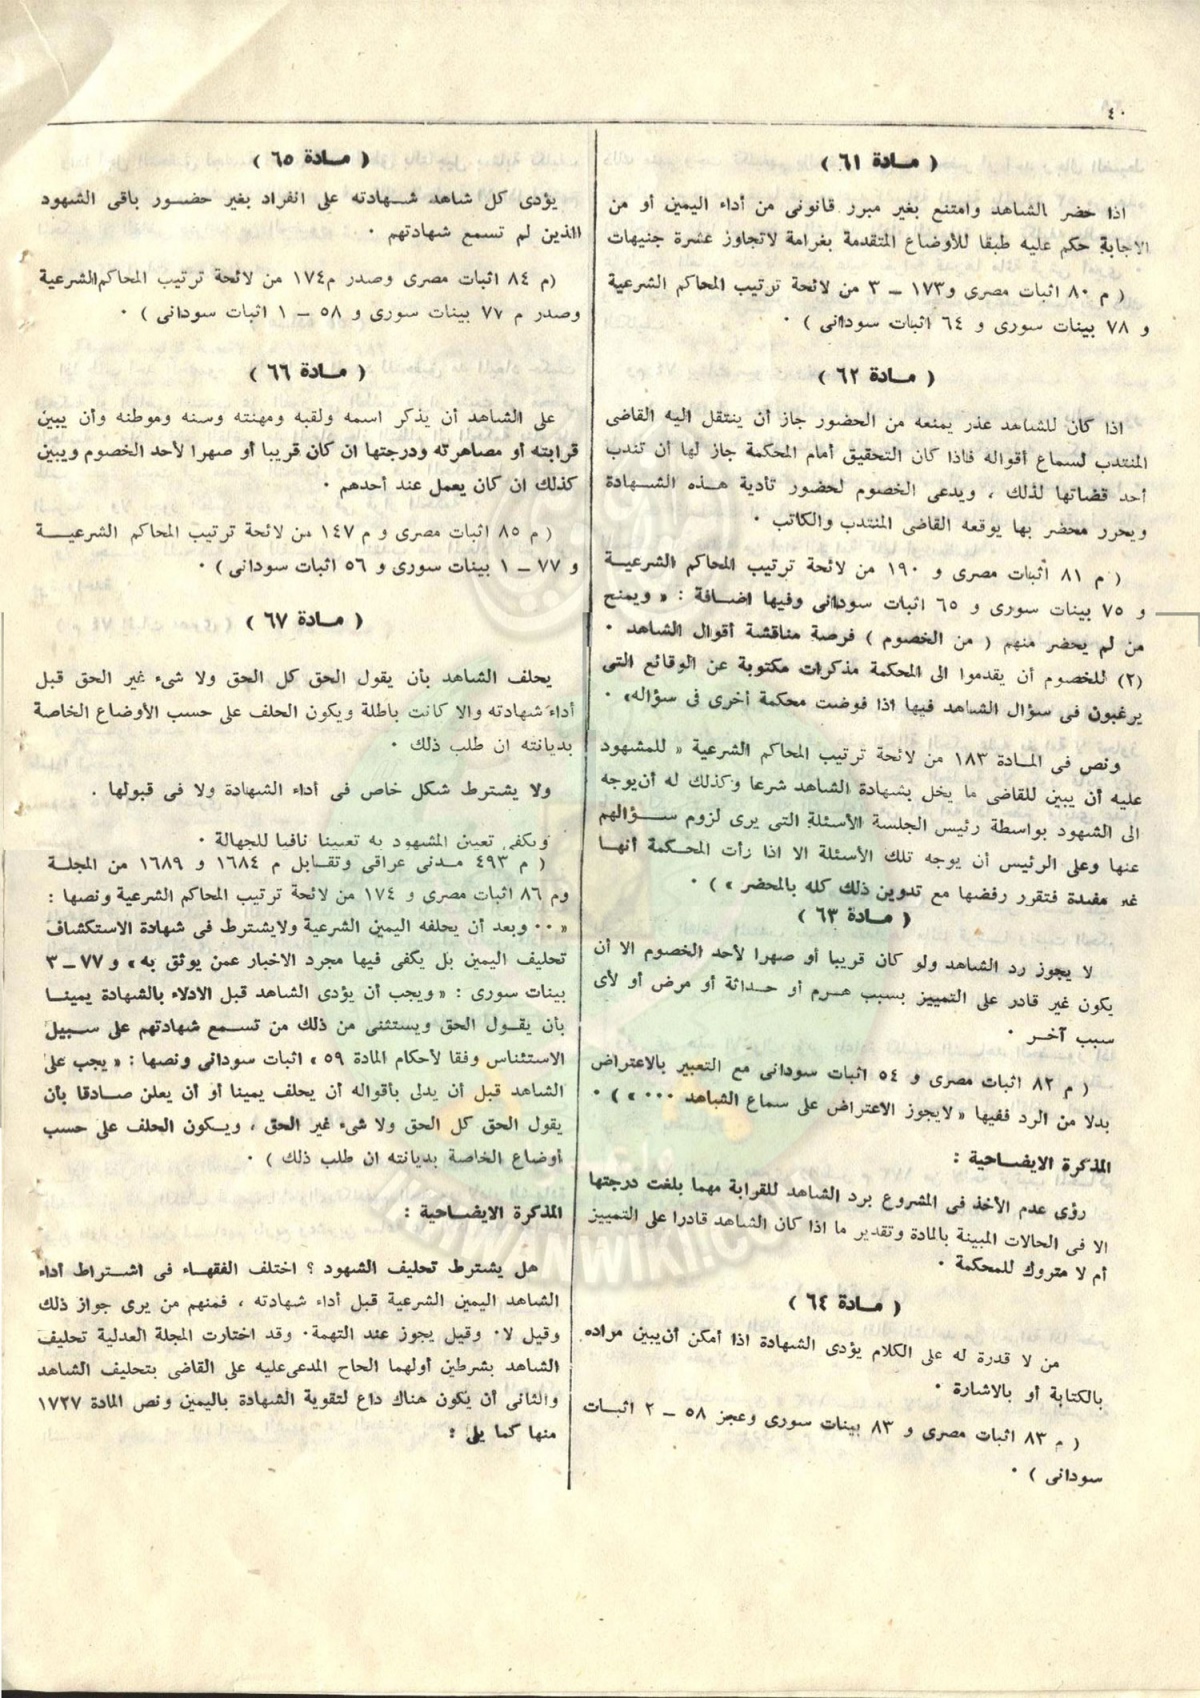 ٤٠
( مــادة ٦١ )
اذا حضر الشاهد وامتنع بغير مبرر قانونى من أداء اليمين أو من
الاجابة حكم عليه طبقا للأوضاع المتقدمة بغرامة لاتجاوز عشرة جنيهات
( م ٨٠ اثبات مصرى و١٧٣ ـ ٣ من لائحة ترتيب المحاكم الشرعية
و ٧٨ بينات سورى و ٦٤ اثبات سودانى ) ٠
( مــادة ٦٢ )
اذا كان للشاهد عذر يمنعه من الحضور جاز أن ينتقل اليه القاضى
المنتدب لسماع أقواله فاذا كان التحقيق أمام المحكمة جاز لها أن تندب
أحد قضاتها لذلك ، ويدعى الخصوم لحضور تأدية هــذه الشــهادة
ويحرر محضر بها يوقعه القاضى المنتدب والكاتب ٠
( م ٨١ أثبات مصرى و ١٩٠ من لائحة ترتيب المحاكم الشرعيــة
و ٧٥ بينات سورى و ٦٥ اثبات سودانى وفيها اضــافة : « ويمنح
من لم يحضر منهم ( من الخصوم ) فرصة مناقشة أقوال الشاهد ٠
(٢) للخصوم أن يقدموا الى المحكمة مذكرات مكتوبة عن الوقائع التى
يرغبون فى سؤال الشاهد فيها اذا فوضت محكمة أخرى فى سؤاله» ٠
ونص فى المــادة ١٨٣ من لائحة ترتيب المحاكم الشرعية « للمشهود
عليه أن يبين للقاضى ما يخل بشهادة الشاهد شرعا وكذلك له أن‌يوجه
الى الشهود بواسطة رئيس الجلسة الأسئلة التى يرى لزوم ســؤالهم
عنها وعلى الرئيس أن يوجه تلك الأسئلة الا اذا رأت المحــكمة أنهــا
غير مفيدة فتقرر رفضها مع تدوين ذلك كله بالمحضر » ) ٠
( مــادة ٦٣ )
لا يجوز رد الشاهد ولو كان قريبا أو صهرا لأحد الخصوم الا أن
يكون غير قادر على التمييز بسبب هــرم أو حــداثة أو مرض أو لأى
سبب آخــر ٠
( م ٨٢ اثبات مصرى و ٥٤ اثبات سودانى مع التعبير بالاعتراض
بدلا من الرد ففيها « لايجوز الاعتراض على سماع الشاهد ٠٠٠ » ) ٠
المذكرة الايضــاحية :
رؤى عدم الأخذ فى المشروع برد الشاهد للقرابة مهما بلغت درجتها
الا فى الحالات المبينة بالمادة وتقدير ما اذا كان الشاهد قادرا على التمييز
أم لا متروك للمحكمة ٠
( مــادة ٦٤ )
من لا قدرة له على الكلام يؤدى الشهادة اذا أمكن أن‌يبين مراده
بالكتابة أو بالاشارة ٠
( م ٨٣ اثبات مصرى و ٨٣ بينات سورى وعجز ٥٨ ـ ٢ اثبــات
سودانى ) ٠
( مــادة ٦٥ )
يؤدى كل شاهد شــهادته على انفراد بغير حضــور باقى الشهود
الذين لم تسمع شهادتهم ٠
(م ٨٤ اثبات مصرى وصدر م١٧٤ من لائحة ترتيب المحاكم‌الشرعية
وصدر م ٧٧ بينات سورى و ٥٨ ـ ١ اثبات سودانى ) ٠
( مــادة ٦٦ )
على الشاهد أن يذكر اسمه ولقبه ومهنته وسنه وموطنه وأن يبين
قرابته أو مصاهرته ودرجتها ان كان قريبا أو صهرا لأحد الخصوم ويبين
كذلك ان كان يعمل عند أحدهم ٠
( م ٨٥ اثبات مصرى و م ١٤٧ من لائحة ترتيب المحاكم الشرعيــة
و ٧٧ ـ ١ بينات سورى و ٥٦ اثبات سودانى ) ٠
( مــادة ٦٧ )
يحلف الشاهد بأن يقول الحق كل الحق ولا شىء غير الحق قبل
أداء شهادته والا كانت باطلة ويكون الحلف على حسب الأوضاع الخاصة
بديانته ان طلب ذلك ٠
ولا يشترط شكل خاص فى أداء الشهادة ولا فى قبولها ٠
ويكفى تعيين المشهود به تعيينا نافيا للجهالة ٠
( م ٤٩٣ مــدنى عراقى وتقــابل م ١٦٨٤ و ١٦٨٩ من المجلة
وم ٨٦ اثبات مصرى و ١٧٤ من لائحة ترتيب المحاكم الشرعية ونصها :
« ٠٠ وبعد أن يحلفه اليمين الشرعية ولايشترط فى شهادة الاستكشاف
تحليف اليمين بل يكفى فيها مجرد الاخبار عمن يوثق به» و ٧٧ ـ ٣
بينات سورى : «ويجب أن يؤدى الشاهد قبل الادلاء بالشهادة يمينــا
بأن يقــول الحق ويستثنى من ذلك من تســمع شهادتهم على ســبيل
الاستئناس وفقا لأحكام المادة ٥٩» اثبات سودانى ونصها : « يجب على
الشاهد قبل أن يدلى بأقواله أن يحلف يمينا أو أن يعلن صــادقا بأن
يقول الحق كل الحق ولا شىء غير الحق ، ويــكون الحلف على حسب
أوضاع الخاصة بديانته ان طلب ذلك ) ٠
المذكرة الايضــاحية :
هل يشــترط تحليف الشهود ؟ اختلف الفقهــاء فى اشــتراط أداء
الشاهد اليمين الشرعية قبل أداء شهادته ، فمنهم من يرى جواز ذلك
وقيل لا٠ وقيل يجوز عند التهمة٠ وقد اختارت المجلة العدلية تحليف
الشاهد بشرطين أولهما الحاح المدعى‌عليه على القاضى بتحليف الشاهد
والثانى أن يكون هناك داع لتقوية الشهادة باليمين ونص المادة ١٧٢٧
منها كما يلى :